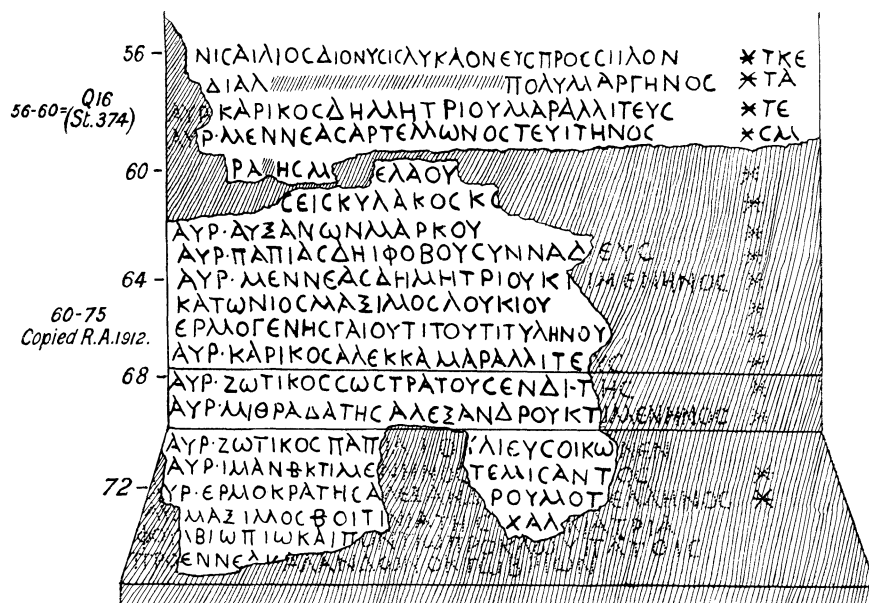 56 - ΝΙϹΑΙΛΙΟϹΔΙΟΝΥϹΙϹΛΥΚΑΟΝΕΥϹΠΡΟϹϹΙΙΛΟΝ ⚹ ΤΚΕ
ΔΙΑΛ ΠΟΛΥΜΑΡΓΗΝΟϹ ⚹ ΤᾺ
56-60 = Q16 (St.374)
ΑΥΡ·ΚΑΡΙΚΟϹΔΗΜΗΤΡΙΟΥΜΑΡΑΛΛΙΤΕΥϹ ⚹ ΤΕ
ΑΥΡ·ΜΕΝΝΕΑϹΑΡΤΕΜΩΝΟϹΤΕΥΙΤΗΝΟϹ ⚹ ϹΜ
60 - ΡΑ ΗϹΜ ΕΛΑΟΥ ⚹
ϹΕΙϹΚΥΛΑΚΟϹΚϹ ⚹
ΑΥΡ·ΑΥΞΑΝΩΝΜΑΡΚΟΥ ⚹
ΑΥΡ·ΠΑΠΙΑϹΔΗΙΦΟΒΟΥϹΥΝΝΑΔΕΥϹ ⚹
64 - ΑΥΡ·ΜΕΝΝΕΑϹΔΗΜΗΤΡΙΟΥΚΤΙΜΕΝΗΝΟϹ ⚹
60-75 Copied R.A.1912.
ΚΑΤΩΝΙΟϹΜΑΞΙΜΟϹΛΟΥΚΙΟΥ ⚹
ΕΡΜΟΓΕΝΗϹΓΑΙΟΥΤΙΤΟΥΤΙΤΥΛΗΝΟΥ ⚹
ΑΥΡ·ΚΑΡΙΚΟϹΑΛΕΚΚΑΜΑΡΑΛΛΙΤΕΥϹ ⚹
68 - ΑΥΡ·ΖΩΤΙΚΟϹϹΩϹΤΡΑΤΟΥϹΕΝΔΙ-ΤΗϹ ⚹
ΑΥΡ·ΜΙΘΡΑΔΑΤΗϹΑΛΕΞΑΝΔΡΟΥΚΤΙΜΕΝΗΝΟϹ ⚹
ΑΥΡ·ΖΩΤΙΚΟϹΠΑΠ ΙΛΙΕΥϹΟΙΚΩΝΕΝ
ΑΥΡ·ΙΜΑΝΒΚΤΙΜΕΝΗΝΟϹ ΤΕΜΙϹΑΝΤΟϹ ⚹
72 - ΥΡ·ΕΡΜΟΚΡΑΤΗϹΑΛΕΞΑΝΔ ΡΟΥΜΟΤΕΛΛΗΝΟϹ ⚹
ΜΑΞΙΜΟϹΒΟΙΤΙΝΙΑΤΗϹ ΧΑΛΚΙΑΤΡΙΑ
ΙΒΙΩΠΙΩΚΑΙΠΟΝΤΙΩΠΡΟΚΛΩΥΠΑΤΟΙϹ
ΠΡΟΕΝΝΕΑΚΑΛΑΝΔΩΝΟΚΤΩΒΡΙΩΝ